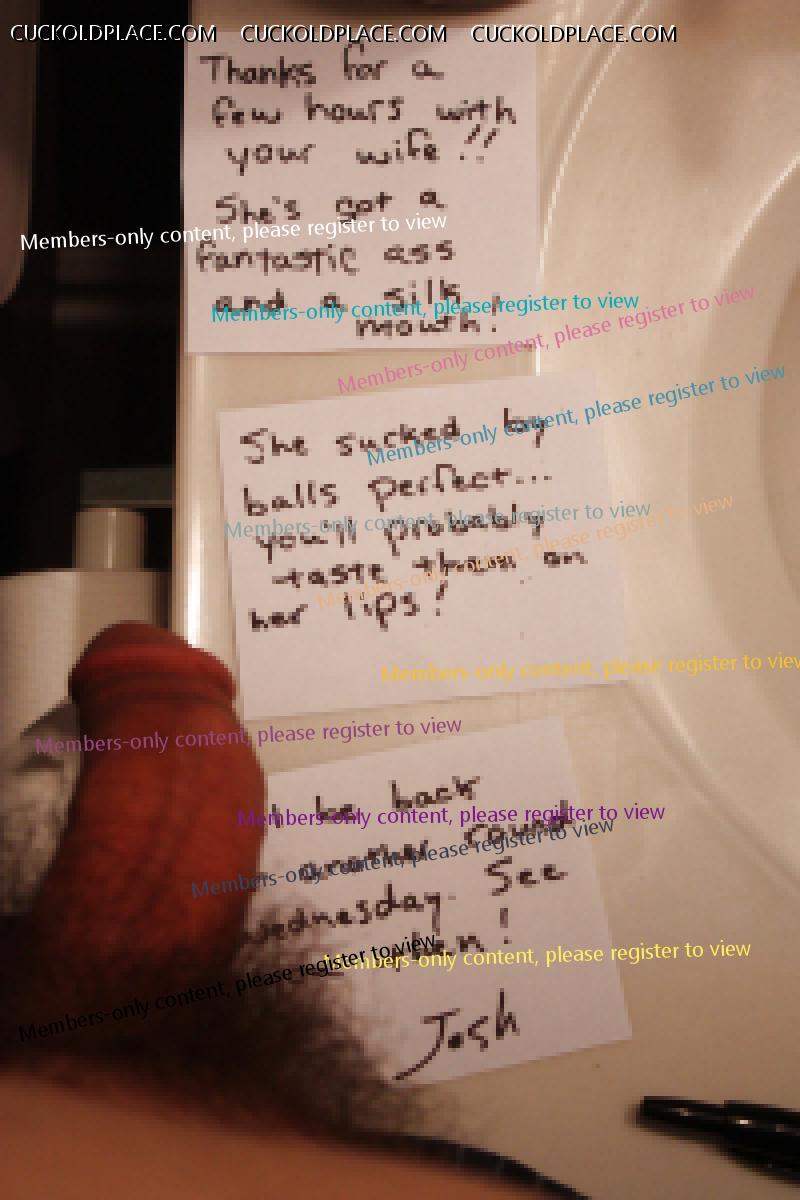 CUCKOLDPLACE.COM CUCKOLDPLACE.COM CUCKOLDPLACE.COM
Thanks for a
few hours with
your wife!!
She's got a
Members-only content, please register to view
fantastic ass
and a silk
Members-only content, please register to view
mouth!
Members-only content, please register to view
She sucked my
Members-only content, please register to view
balls perfect...
you'll probably
Members-only content, please register to view
taste them on
Members-only content, please register to view
her lips!
Members-only content, please register to view
Members-only content, please register to view
be back
Members-only content, please register to view
another round
Members-only content, please register to view
Wednesday. See
then!
Members-only content, please register to view
Members-only content, please register to view
Josh